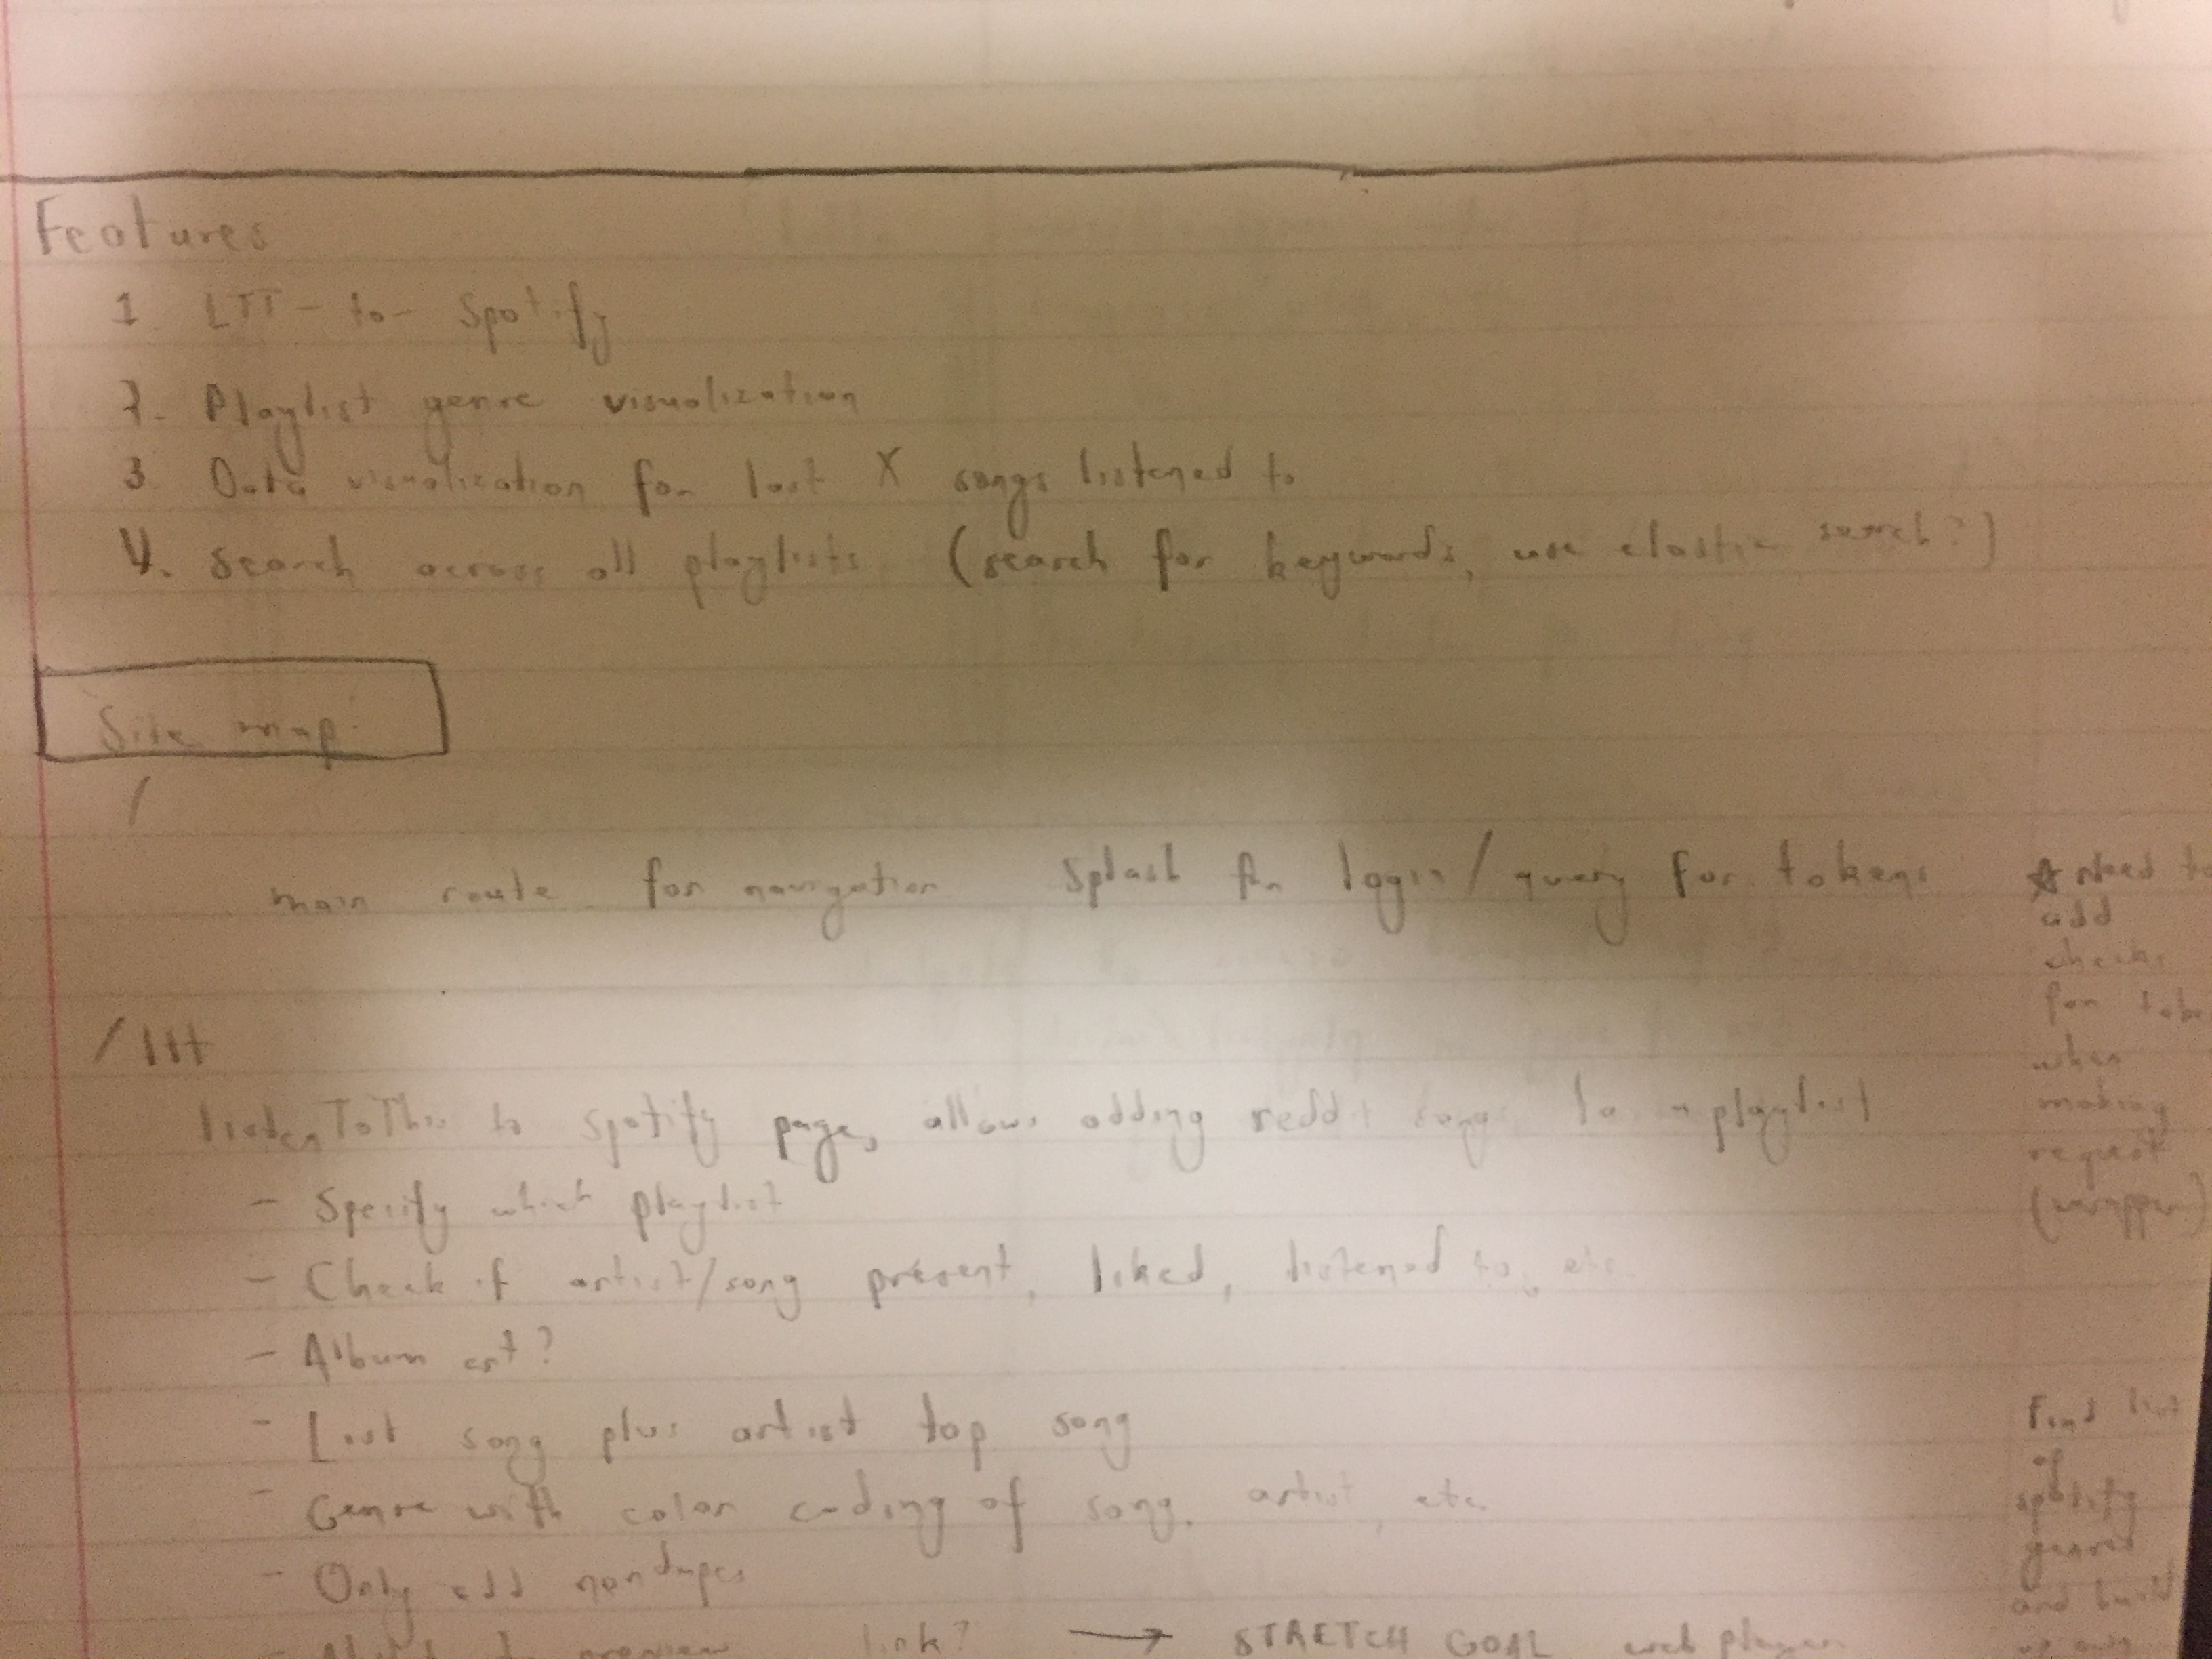 Features
1. LTT - to - Spotify
2. Playlist genre visualization
3. Data visualization for last X songs listened to
4. Search across all playlists (search for keywords, use elastic search?)
Site map
/
main route for navigation Splash for login/query for tokens
/ltt
listenToThis to spotify page, allows adding reddit songs to a playlist
- Specify which playlist
- Check if artist/song present, liked, listened to, etc.
- Album art?
- List song plus artist top song
- Genre with color coding of song, artist, etc.
- Only add nondupes
- preview link? → STRETCH GOAL web player
☆ Need to
add
checks
for
when
making
request
(wrapper)
Find list
of
spotify
genres
and build
up own